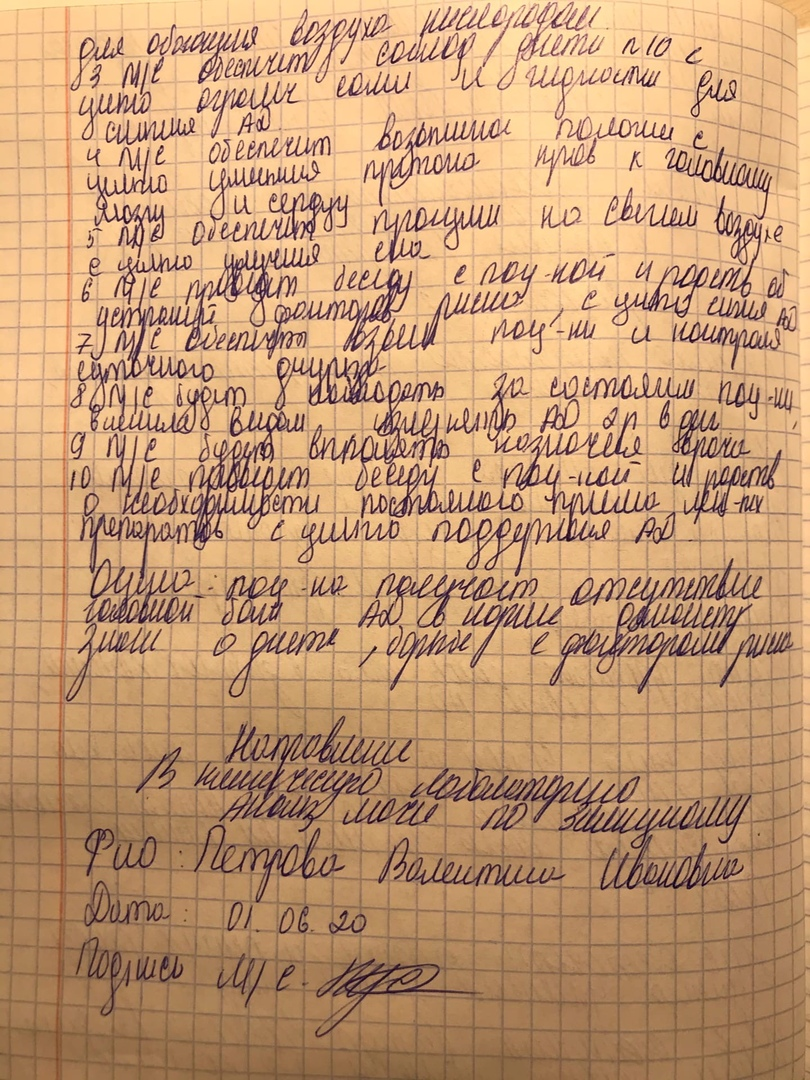 для обогащения воздуха кислородом.
3 М/с обеспечит соблюд диеты п 10 с
целью огранич соли и жидкости для
снижения АД
4 М/с обеспечит возвышеное положение с
целью уменшения притока крови к головному
мозгу и сердцу
5 М/с обеспечит прогулки на свежем воздухе
с целью улучшения сна
6 М/с проведёт беседу с пац-кой и родств об
устранении факторов риска, с целью сниж АД
7 М/с обеспечит пац-ки и контроля
суточного диуреза
8 М/с будет наблюдать за состоянием пац-ки,
внешнем видом, измерять АД 2р в день
9 М/с будет выполнять назначения врача
10 М/с проведёт беседу с пац-кой и родств
о необходимости постоянного приема лец-ных
препаратов с целью поддержания АД.
Оценка: пац-ка отсутствие
головной боли АД в норме
знания о диете, борьбе с факторами риска
Направление
В клиническую лабораторию
Анализ мочи по зимницкому.
Фио: Петрова Валентина Ивановна
Дата: 01.06.20
Подпись М/с.